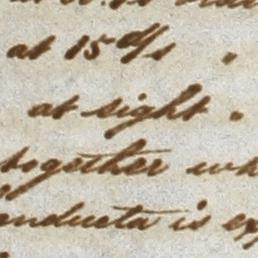 at 15 d/s .
at sight .
together wh
onducta is ex